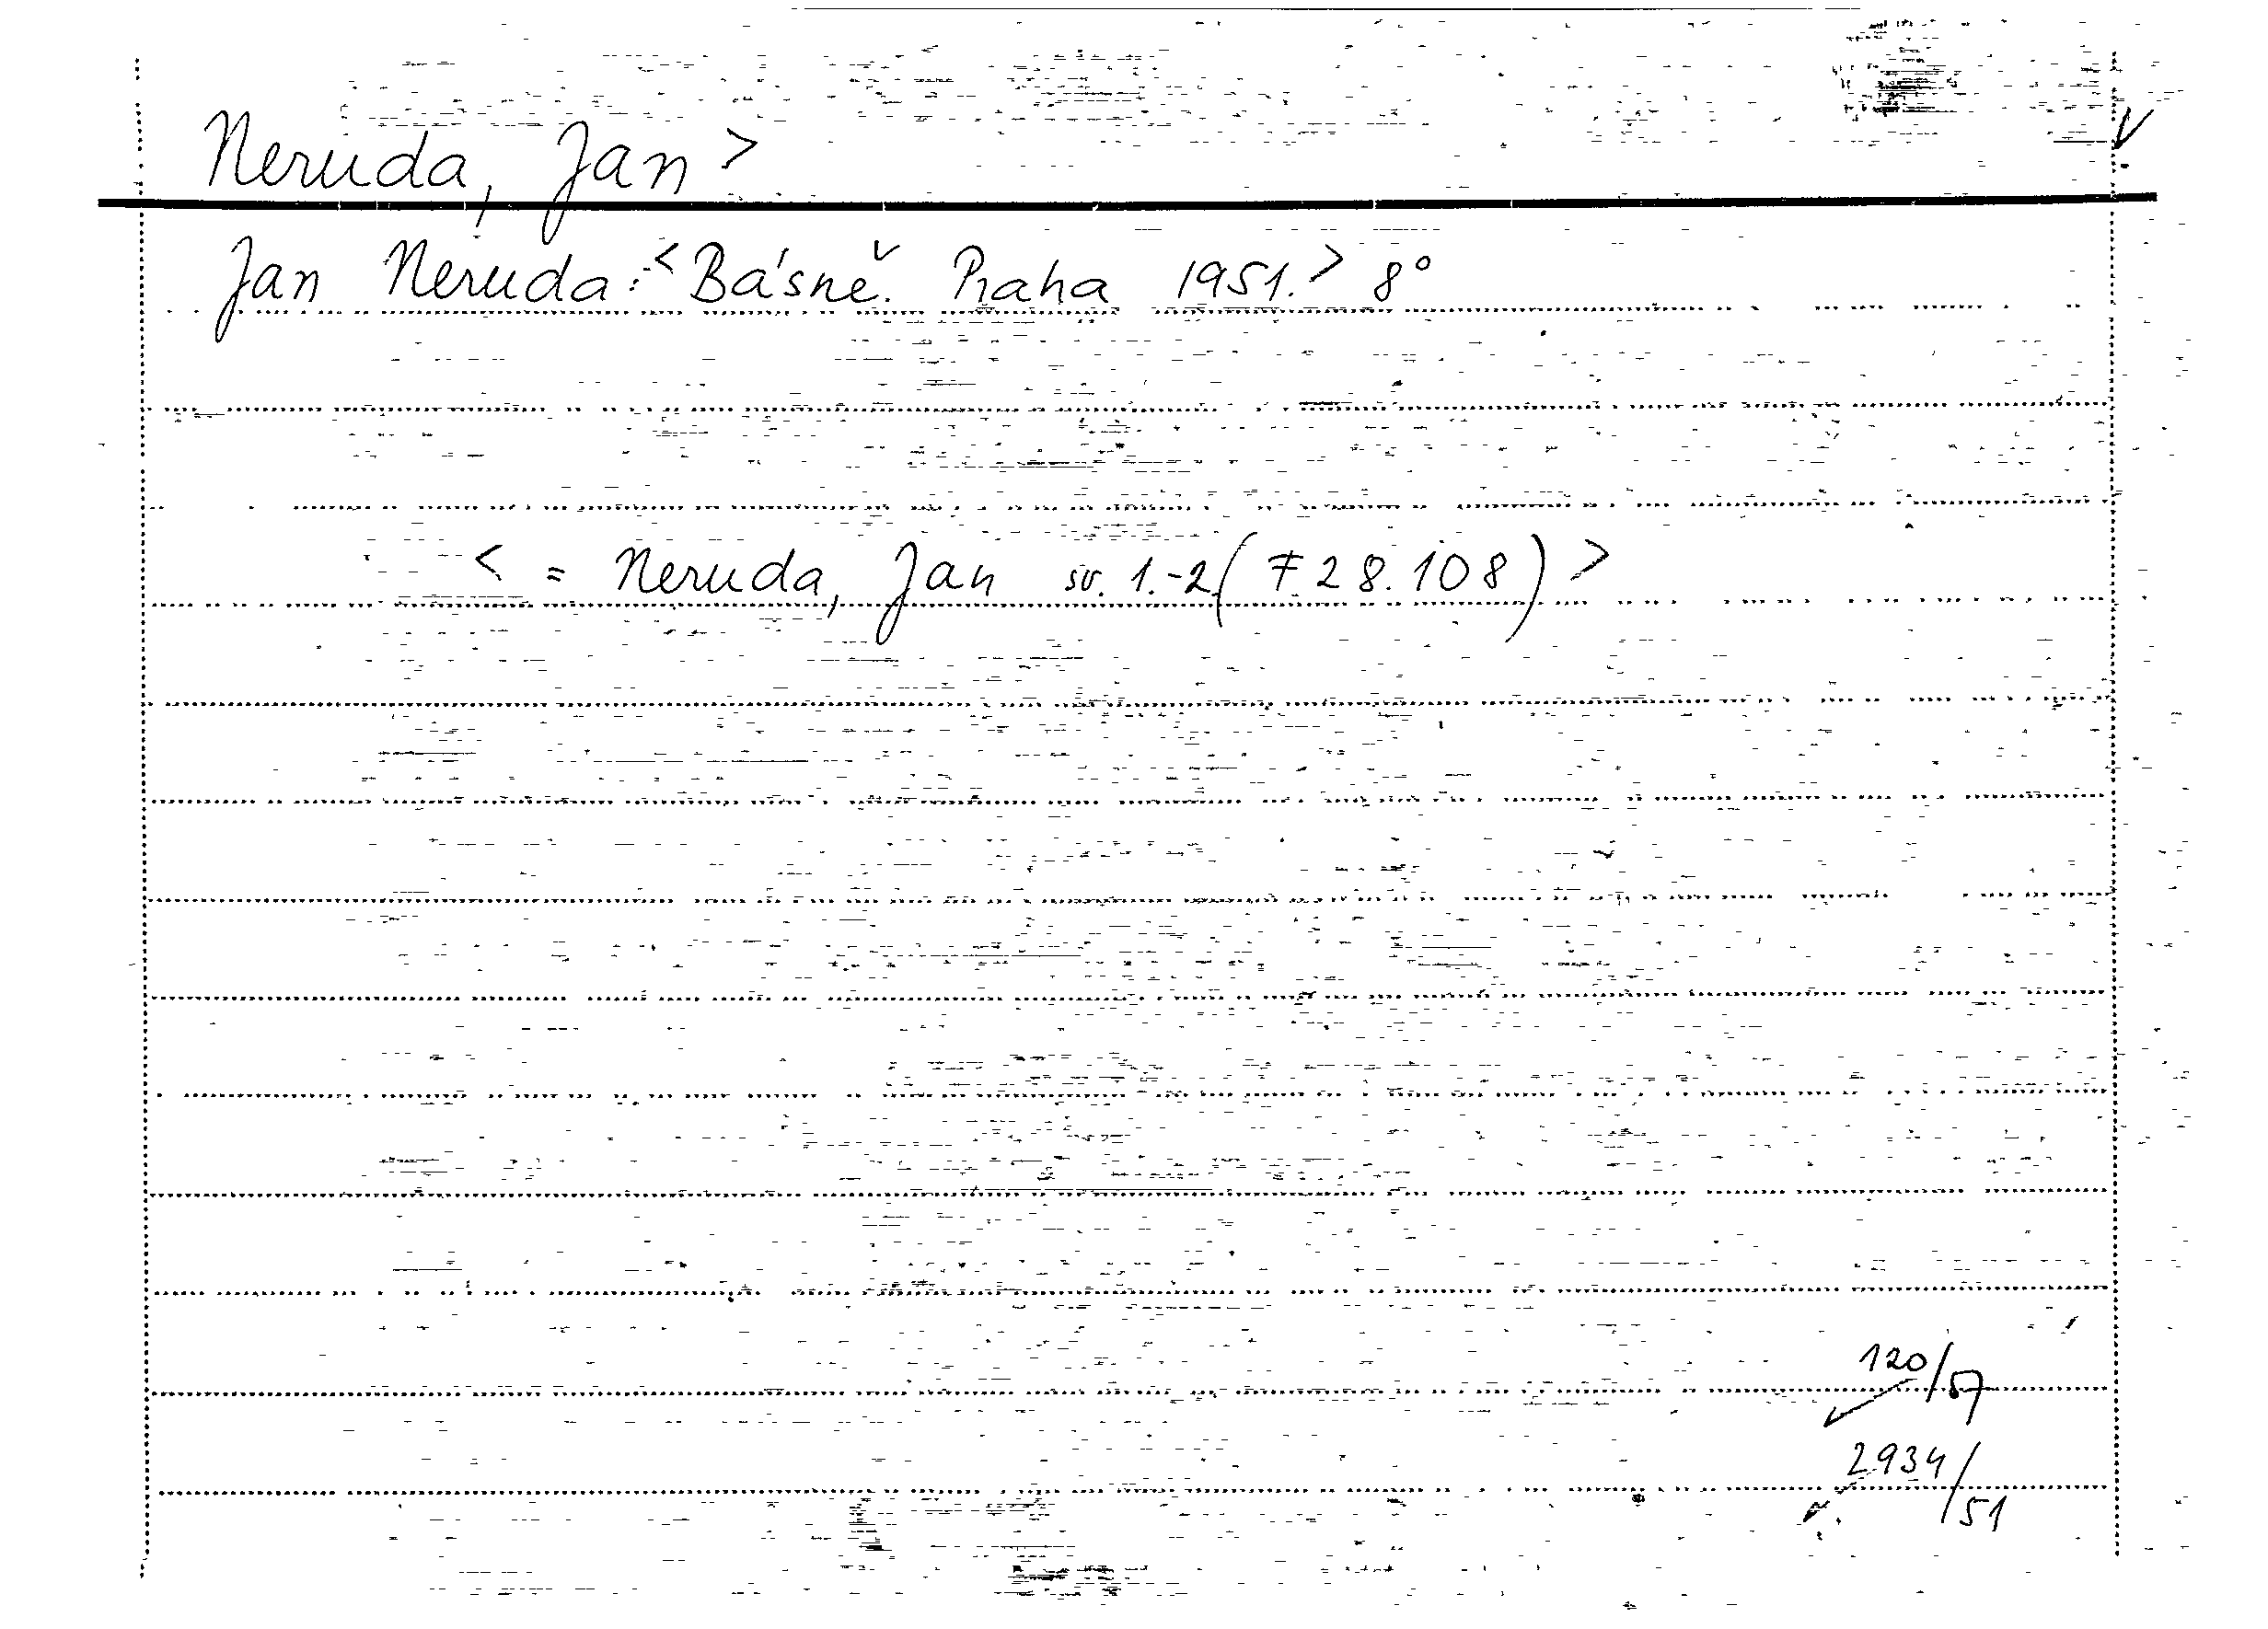 Neruda, Jan >
Jan Neruda: < Básně. Praha 1951. > 8°
< = Neruda, Jan sv. 1.-2 (728.108) >
120/57
2934/51